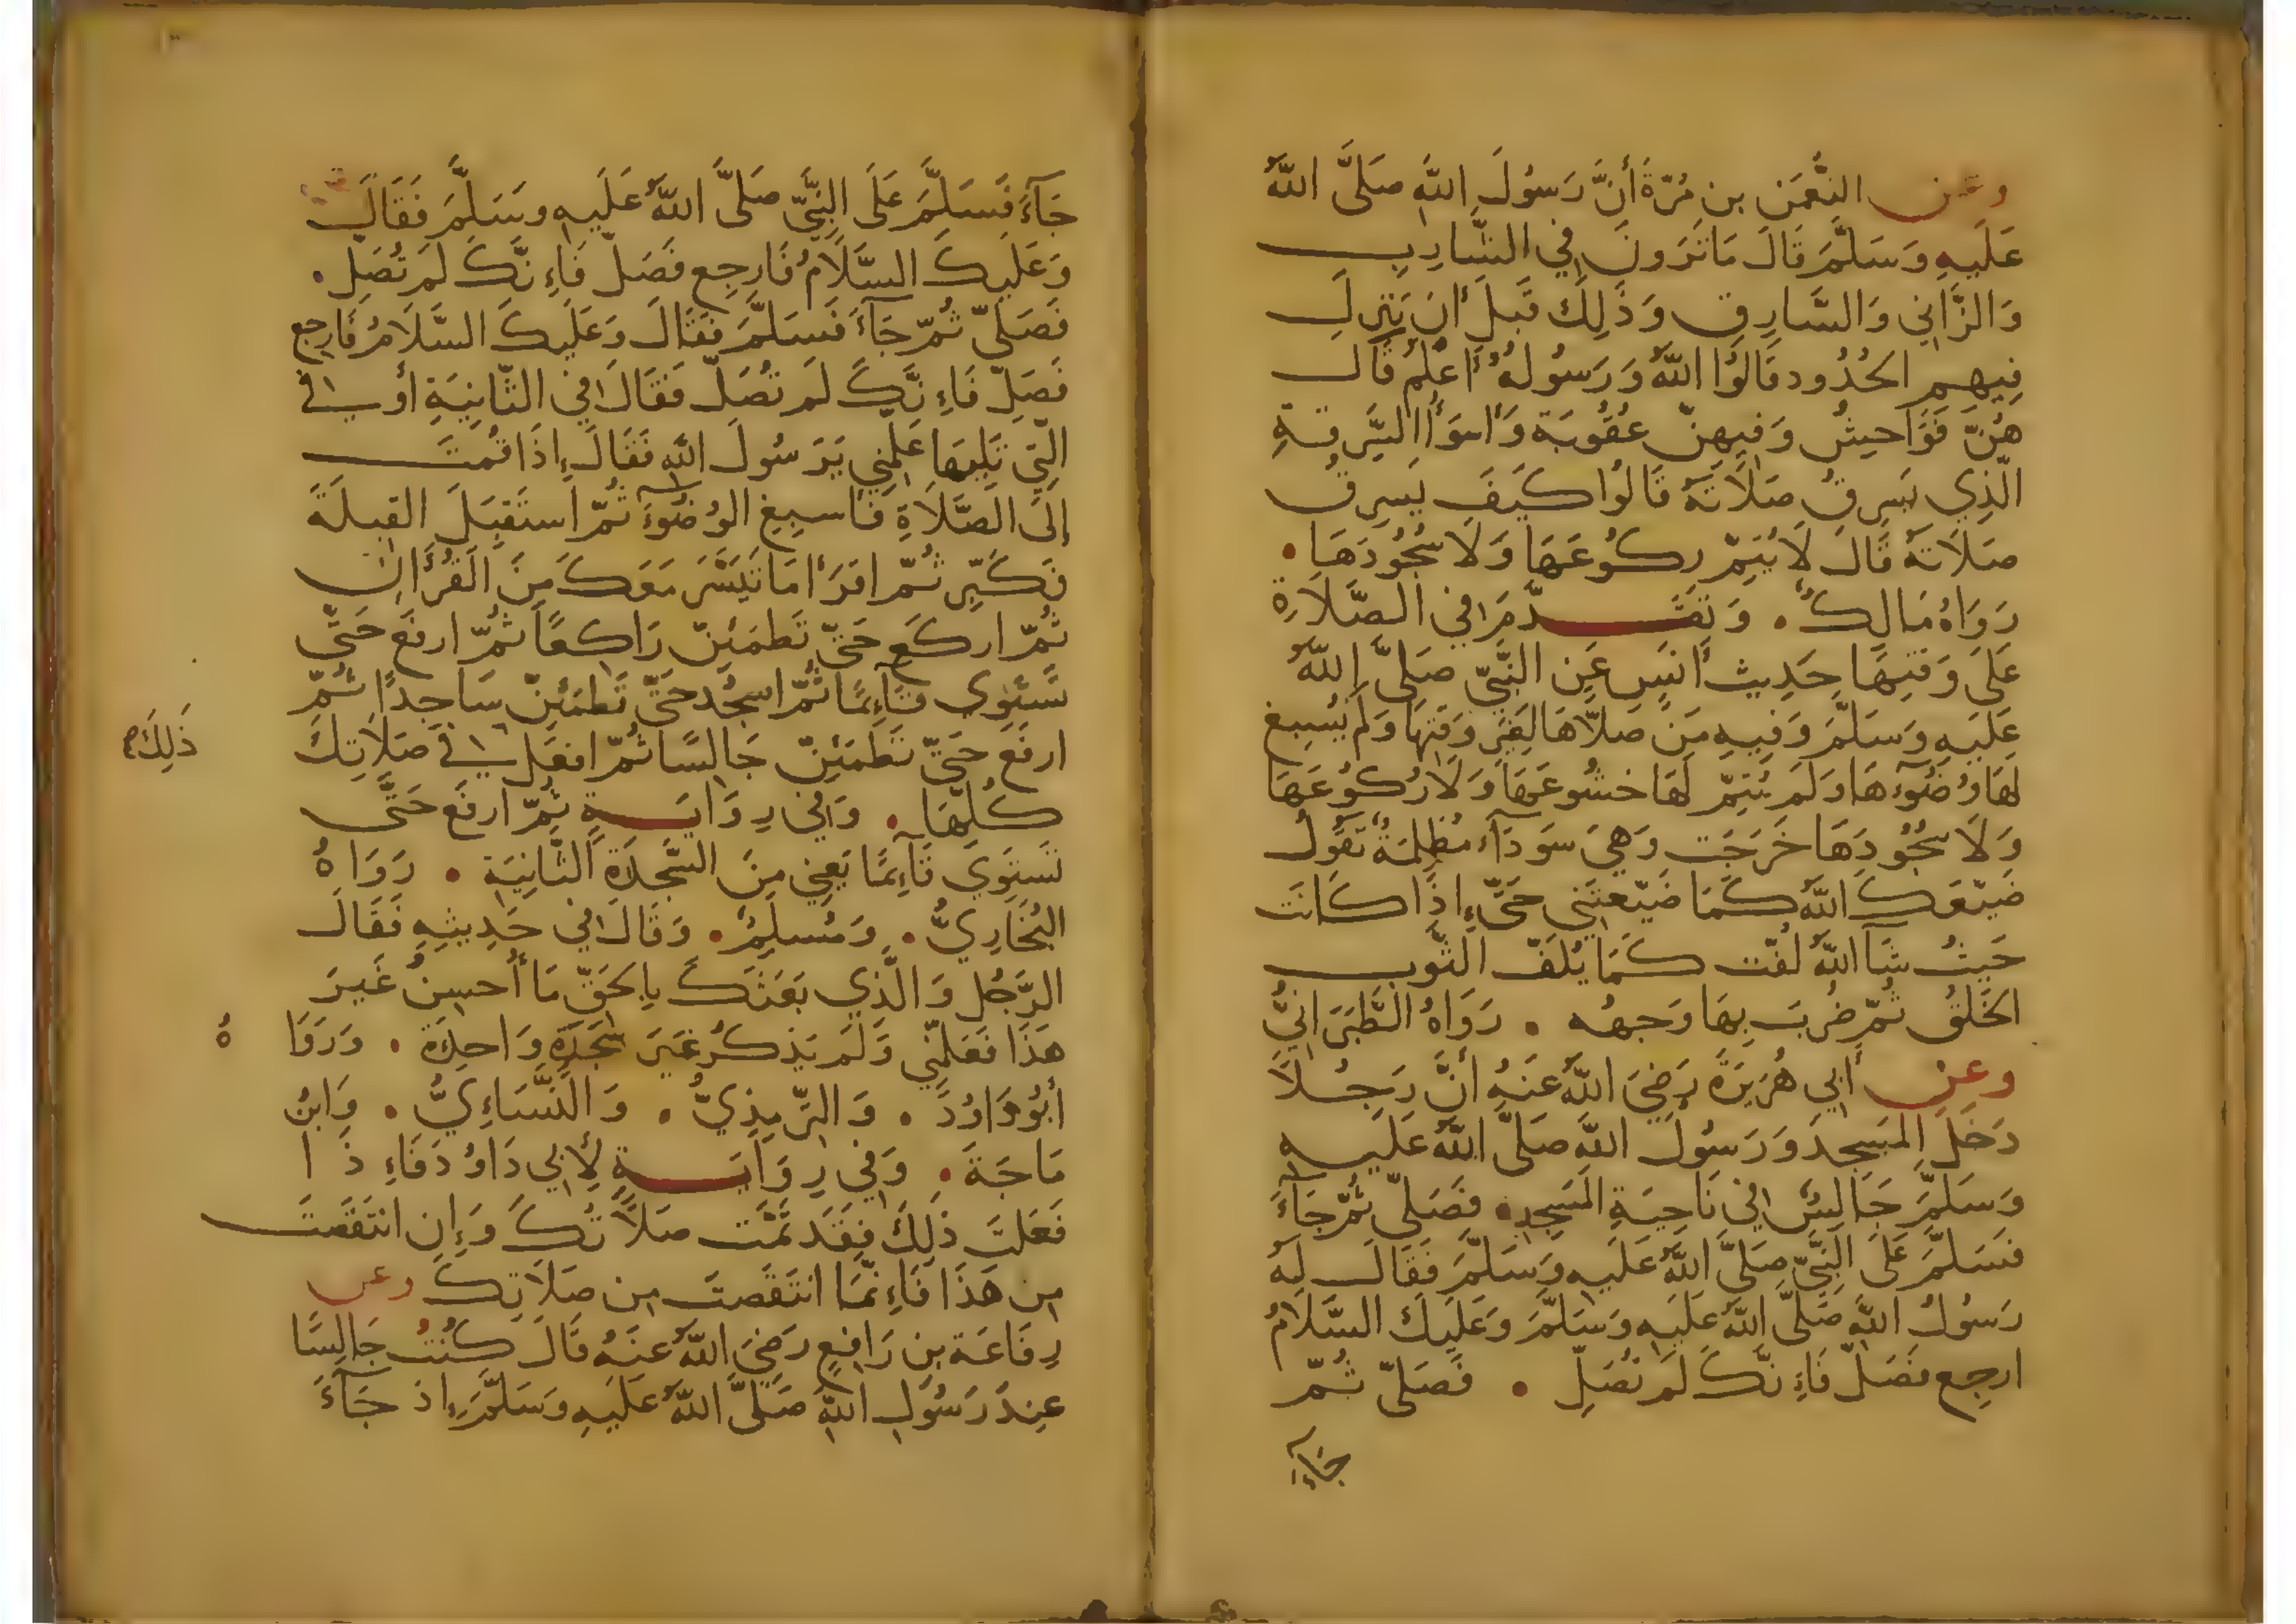 وعن النُّعْمَنِ بنِ مُرَّةَ أَنَّ رَسُولَ اللَّهِ صَلَّى اللَّهُ
عَلَيهِ وَسَلَّمَ قَالَ مَا تَرَونَ فِي الشَّارِبِ
وَالزَّانِي وَالسَّارِقِ وَذَلِكَ قَبلَ أَن يَنزِلَ
فِيهِمِ الحُدُود قَالُوا اللَّهُ وَرَسُولُهُ أَعلَمُ قَالَ
هُنَّ فَوَاحِيشُ وَفِيهِنَّ عُقُوبَة وَأَسوَأُ السَّرِقَةِ
الَّذِي يَسرِقُ صَلَاتَهُ قَالُوا كَيفَ يَسرِقُ
صَلَاتَهُ قَالَ لَا يُتِمُّ رُكُوعَهَا وَلَا سُجُودَهَا.
رَوَاهُ مَالِكٌ. وَتَقَدَّمَ فِي الصَّلَاةِ
عَلَى وَقتِهَا حَدِيث أَنَسٍ عَنِ النَّبِيِّ صَلَّى اللَّهُ
عَلَيهِ وَسَلَّمَ وَفِيهِ مَن صَلَّاهَا لِغَيرِ وَقتِهَا وَلَم يُسبِغ
لَهَا وُضُوءَهَا وَلَم يُتِمَّ لَهَا خشُوعَهَا وَلَا رُكُوعَهَا
وَلَا سُجُودَهَا خَرَجَت وَهِيَ سَودَآءُ مُظلِمَةٌ تَقُولُ
ضَيَّعَكَ اللَّهُ كَمَا ضَيَّعتَنِي حَتَّى إِذَا كَانَت
حَيثُ شَآ اللَّهُ لُفَّت كَمَا يُلَفُّ الثَّوب
الخَلَقُ ثُمَّ ضُرِبَ بِهَا وَجهُه . رَوَاهُ الطَّبَرَانِيُّ
وعن أَبِي هُرَيرَةَ رَضِيَ اللَّهُ عَنهُ أَنَّ رَجُلًا
دَخَلَ المَسجِدَ وَرَسُولُ اللَّهِ صَلَّى اللَّهُ عَلَيهِ
وَسَلَّمَ جَالِسٌ فِي نَاحِيَةِ المَسجِدِ. فَصَلَّى ثُمَّ جَآءَ
فَسَلَّمَ عَلَى النَّبِيِّ صَلَّى اللَّهُ عَلَيهِ وَسَلَّمَ فَقَالَ لَهُ
رَسُولُ اللَّهِ صَلَّى اللَّهُ عَلَيهِ وَسَلَّمَ وَعَلَيكَ السَّلَامُ
ارجِع فَصَلِّ فَإِنَّكَ لَم تُصَلِّ . فَصَلَّى ثُمَّ
جَآءَ
جَآءَ فَسَلَّمَ عَلَى النَّبِيِّ صَلَّى اللَّهُ عَلَيهِ وسَلَّمَ فَقَالَ
وَعَلَيكَ السَّلَامُ فَارجِع فَصَلِّ فَإِنَّكَ لَم تُصَلِّ.
فَصَلَّى ثُمَّ جَآءَ فَسَلَّمَ فَقَالَ وَعَلَيكَ السَّلَامُ فَارجِع
فَصَلِّ فَإِنَّكَ لَم تُصَلِّ فَقَالَ فِي الثَّانِيَةِ أَو فِي
الَّتِي تَلِيهَا عَلِّمنِي يَرَسُولَ اللَّهِ فَقَالَ إِذَا قُمتَ
إِلَى الصَّلَاةِ فَاسبِغِ الوُضُوءَ ثُمَّ استَقبِلَ القِبلَةَ
فَكَبِّر ثُمَّ اقرَأ مَا تَيَسَّرَ مَعَكَ مِنَ القُرأَانِ
ثُمَّ اركَع حَتَّى تَطمَئِنَّ رَاكِعًا ثُمَّ ارفَع حَتَّى
تَستَوِي قَآئِمًا ثُمَّ اسجُد حَتَّى تَطمَئِنَّ سَاجِدًا ثُمَّ
ارفَع حَتَّى تَطمَئِنَّ جَالِسًا ثُمَّ افعَل فِي صَلَاتِكَ
ذَلِكَ
كُلِّهَا . وَفِي رِوَايَةٍ ثُمَّ ارفَع حَتَّى
تَستَوِيَ قَآئِمًا يَعنِي مِنَ السَّجدَةِ الثَّانِيَةِ . رَوَاهُ
البُخَارِيُّ. وَمُسلِمٌ. وَقَالَ فِي حَدِيثِهِ فَقَالَ
الرَّجُل وَالَّذِي بَعَثَكَ بِالحَقِّ مَا أُحسِنُ غَيرَ
هَذَا فَعَلِّمنِي وَلَم يَذكُر غَيرَ سَجدَةٍ وَاحِدَةٍ . وَرَوَا هُ
أَبُو دَاوُدَ . وَالتِّرمِذِيُّ . وَالنَّسَاءِيُّ . وَابنُ
مَاجَةَ. وَفِي رِوَايَةٍ لِأَبِي دَاوُدَ فَإِذَا
فَعَلتَ ذَلِكَ فَقَد تَمَّت صَلَاتُكَ وَإِنِ انتَقَصتَ
مِن هَذَا فَإِنَّمَا انتَقَصتَ مِن صَلَاتِكَ وعن
رِفَاعَةَ بنِ رَافِعٍ رَضِيَ اللَّهُ عَنهُ قَالَ كُنتُ جَالِسًا
عِندَ رَسُولِ اللَّهِ صَلَّى اللَّهُ عَلَيهِ وَسَلَّمَ إِذ جَآءَ